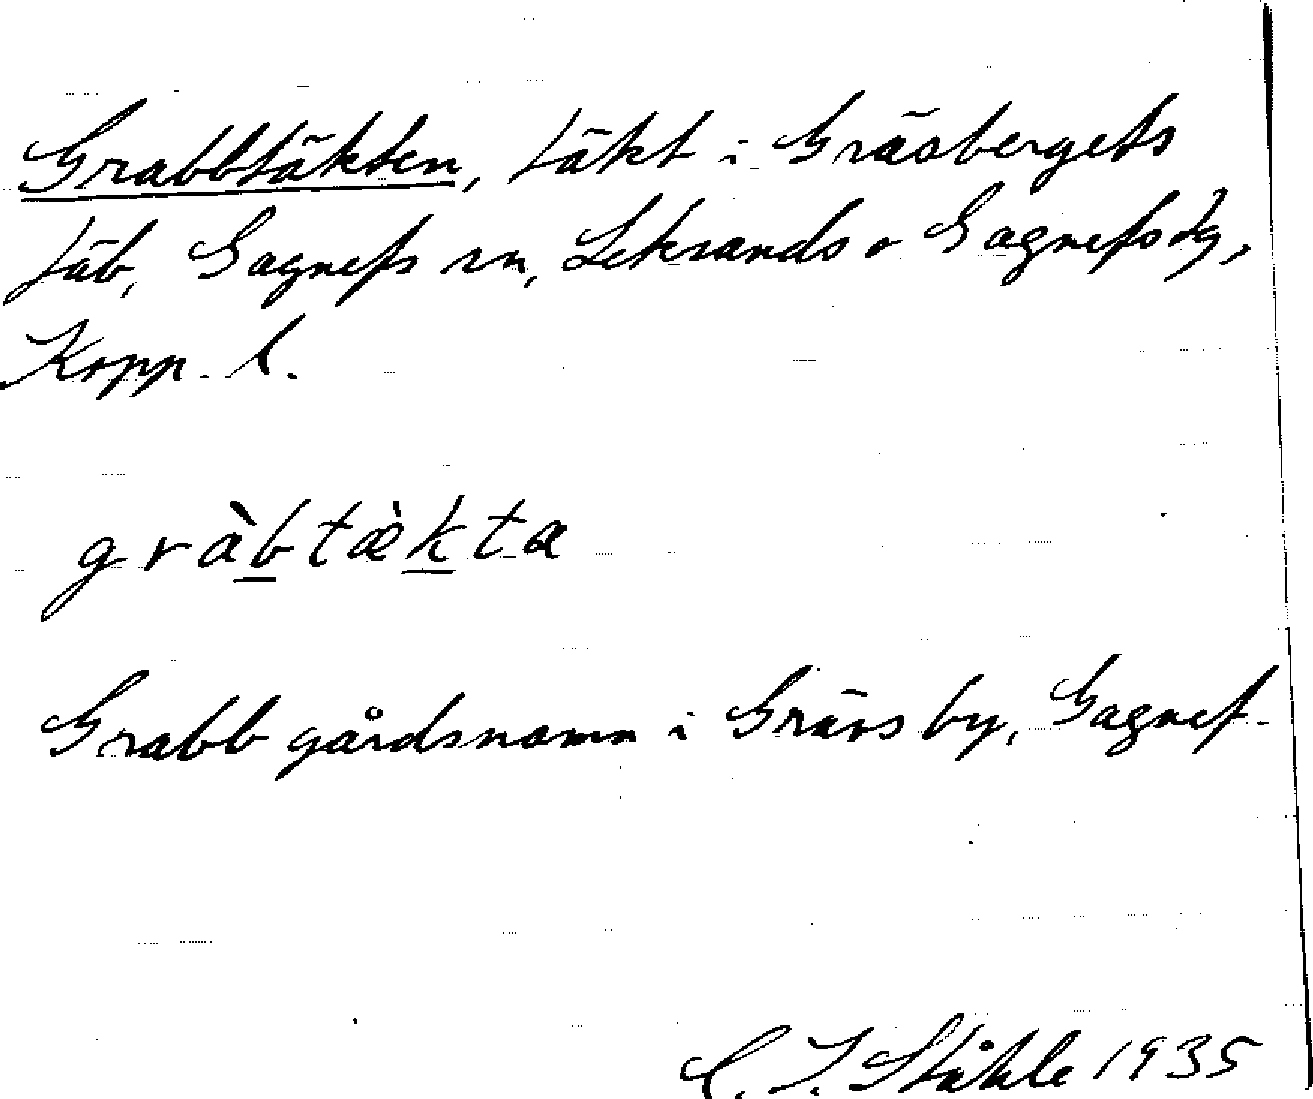 Grabbtäkten, täkt i Gräsbergets
fäb, Gagnefs sn, Leksands o Gagnefs dg,
Kopp. l.
gràbtæ̀kta
Grabb gårdsnamn i Grävs by, Gagnef.
C. I. Ståhle 1935